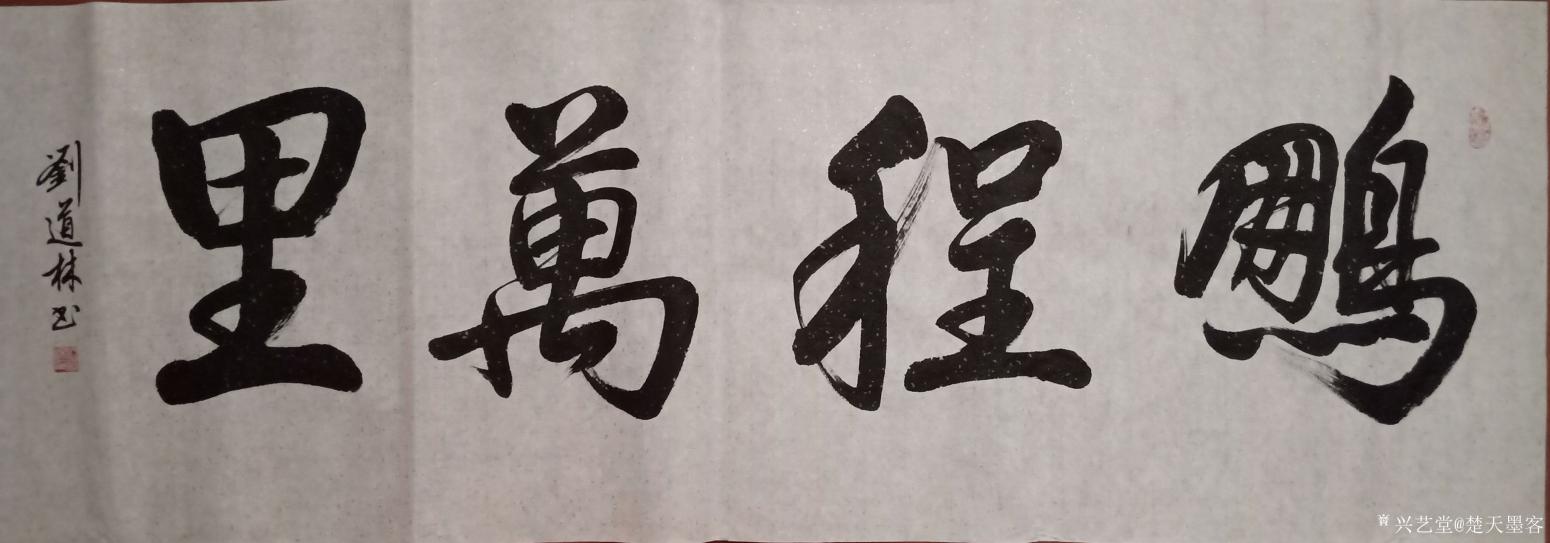 鵬程萬里
劉道林书
兴艺堂@楚天墨客